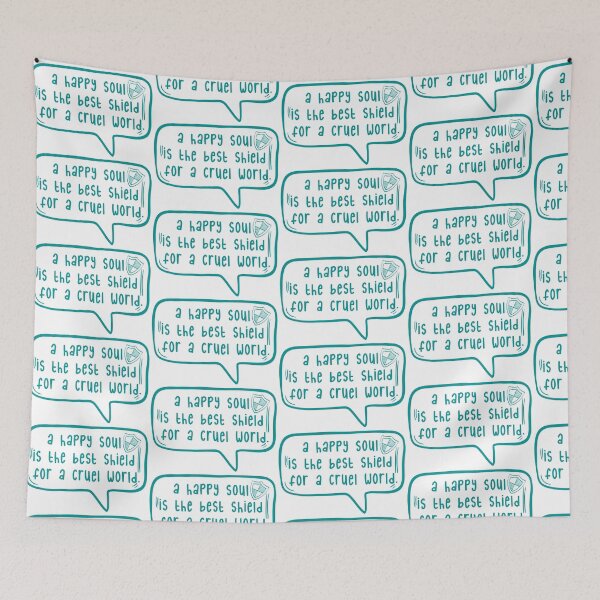 a happy soul
is the best shield
for a cruel world.
a happy soul
is the best shield
for a cruel world.
a happy soul
is the best shield
for a cruel world.
a happy soul
is the best shield
for a cruel world.
a happy soul
is the best shield
for a cruel world.
for a cruel world.
a happy soul
is the best shield
for a cruel world.
a happy soul
is the best shield
for a cruel world.
a happy soul
is the best shield
for a cruel world.
a happy soul
is the best shield
for a cruel world.
a happy soul
is the best shield
for a cruel world.
a happy soul
is the best shield
for a cruel world.
a happy soul
is the best shield
for a cruel world.
a happy soul
is the best shield
for a cruel world.
a happy soul
is the best shield
for a cruel world.
a happy soul
is the best shield
for a cruel world.
for a cruel world.
a happy soul
is the best shield
for a cruel world.
a happy soul
is the best shield
for a cruel world.
a happy soul
is the best shield
for a cruel world.
a happy soul
is the best shield
for a cruel world.
a happy soul
is the best shield
for a cruel world.
a
is
for
a
is
for
a
is
for
a
is
for
a
is
for